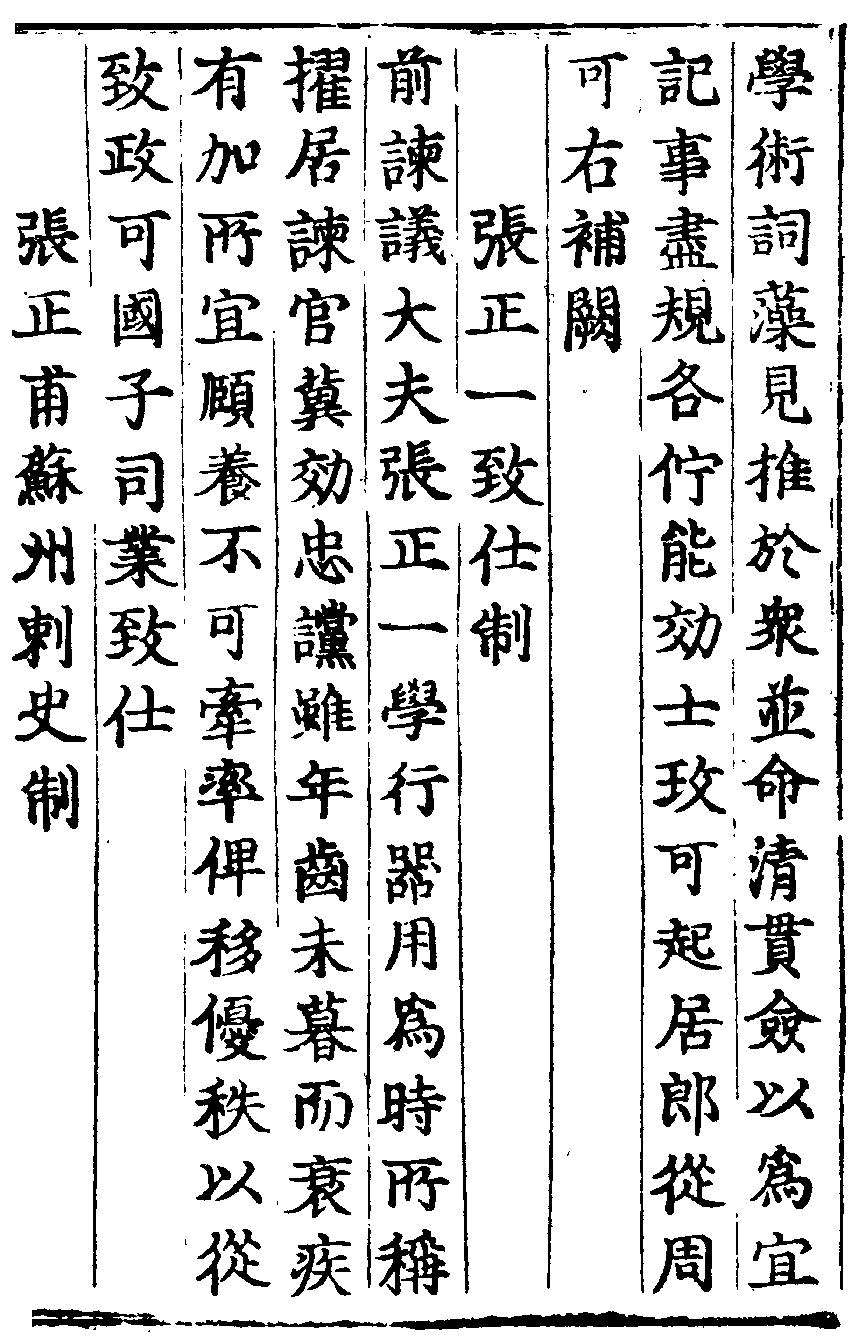 學術詞藻見推於衆並命清貫僉以爲宜
記事盡規各佇能効士玫可起居郎從周
可右補闕
張正一致仕制
前諫議大夫張正一學行器用爲時所稱
擢居諫官冀効忠讜雖年齒未暮而衰疾
有加所宜頤養不可牽率俾移優秩以從
致政可國子司業致仕
張正甫蘇州刺史制